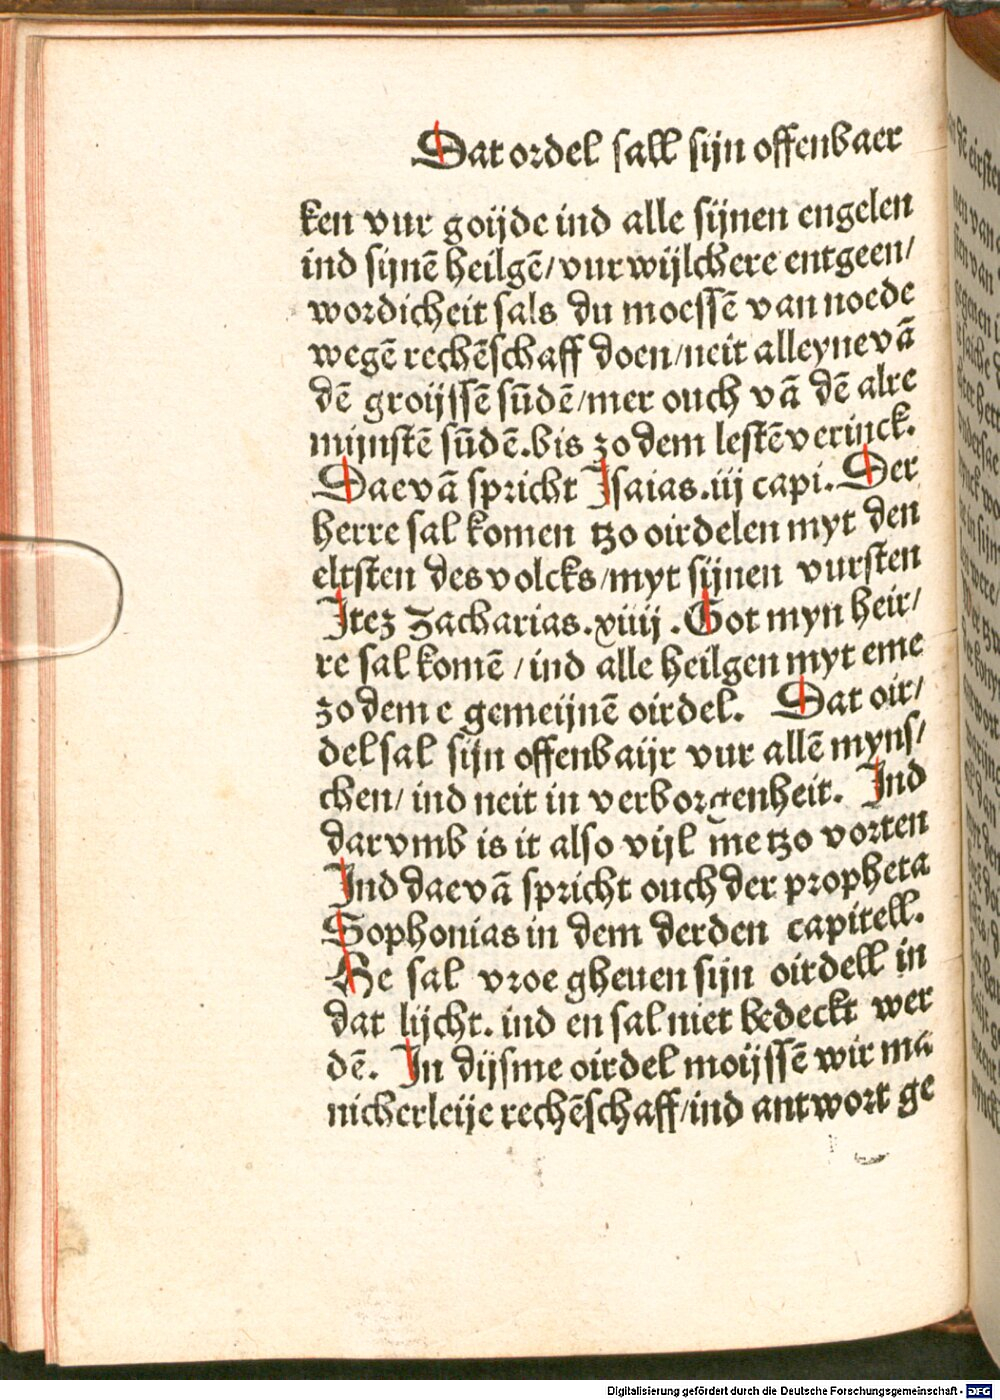 Dat ordel sall sijn offenbaer
ken vur goijde ind alle sijnen engelen
ind sijnē heilgē/vur wijlchere entgeen/
wordicheit sals du moessē van noede
wegē rechēschaff doen/neit alleyne vā
dē groijssē sūdē/mer ouch vā dē alre
mijnstē sūdē.bis zo dem lestē verinck.
Daevā spricht Isaias.iij capi. Der
herre sal komen tzo oirdelen myt den
eltsten des volcks/myt sijnen vursten
Itez Zacharias.xiiij. Got myn heir/
re sal komē /ind alle heilgen myt eme
zo deme gemeijnē oirdel. Dat oir/
del sal sijn offenbaijr vur allē myns/
chen/ ind neit in verborgenheit. Ind
darvmb is it also vijl me tzo vorten
Ind daevā spricht ouch der propheta
Sophonias in dem derden capitell.
He sal vroe gheuen sijn oirdell in
dat lijcht. ind en sal niet bedeckt wer
dē. In dijsme oirdel moijssē wir ma
nicherleije rechēschaff/ind antwort ge
Digitalisierung gefördert durch die Deutsche Forschungsgemeinschaft - DFG